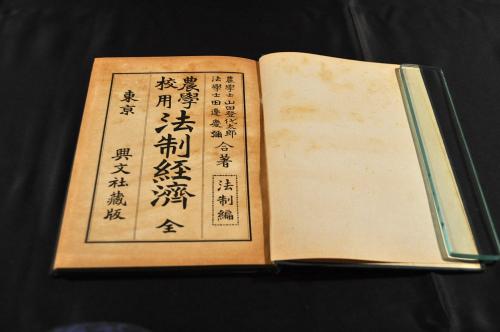 農學士 山田登代太郎
法學士 田邊慶彌
合著
法制編
農學
校用
法制經濟 全
東京
興文社藏版